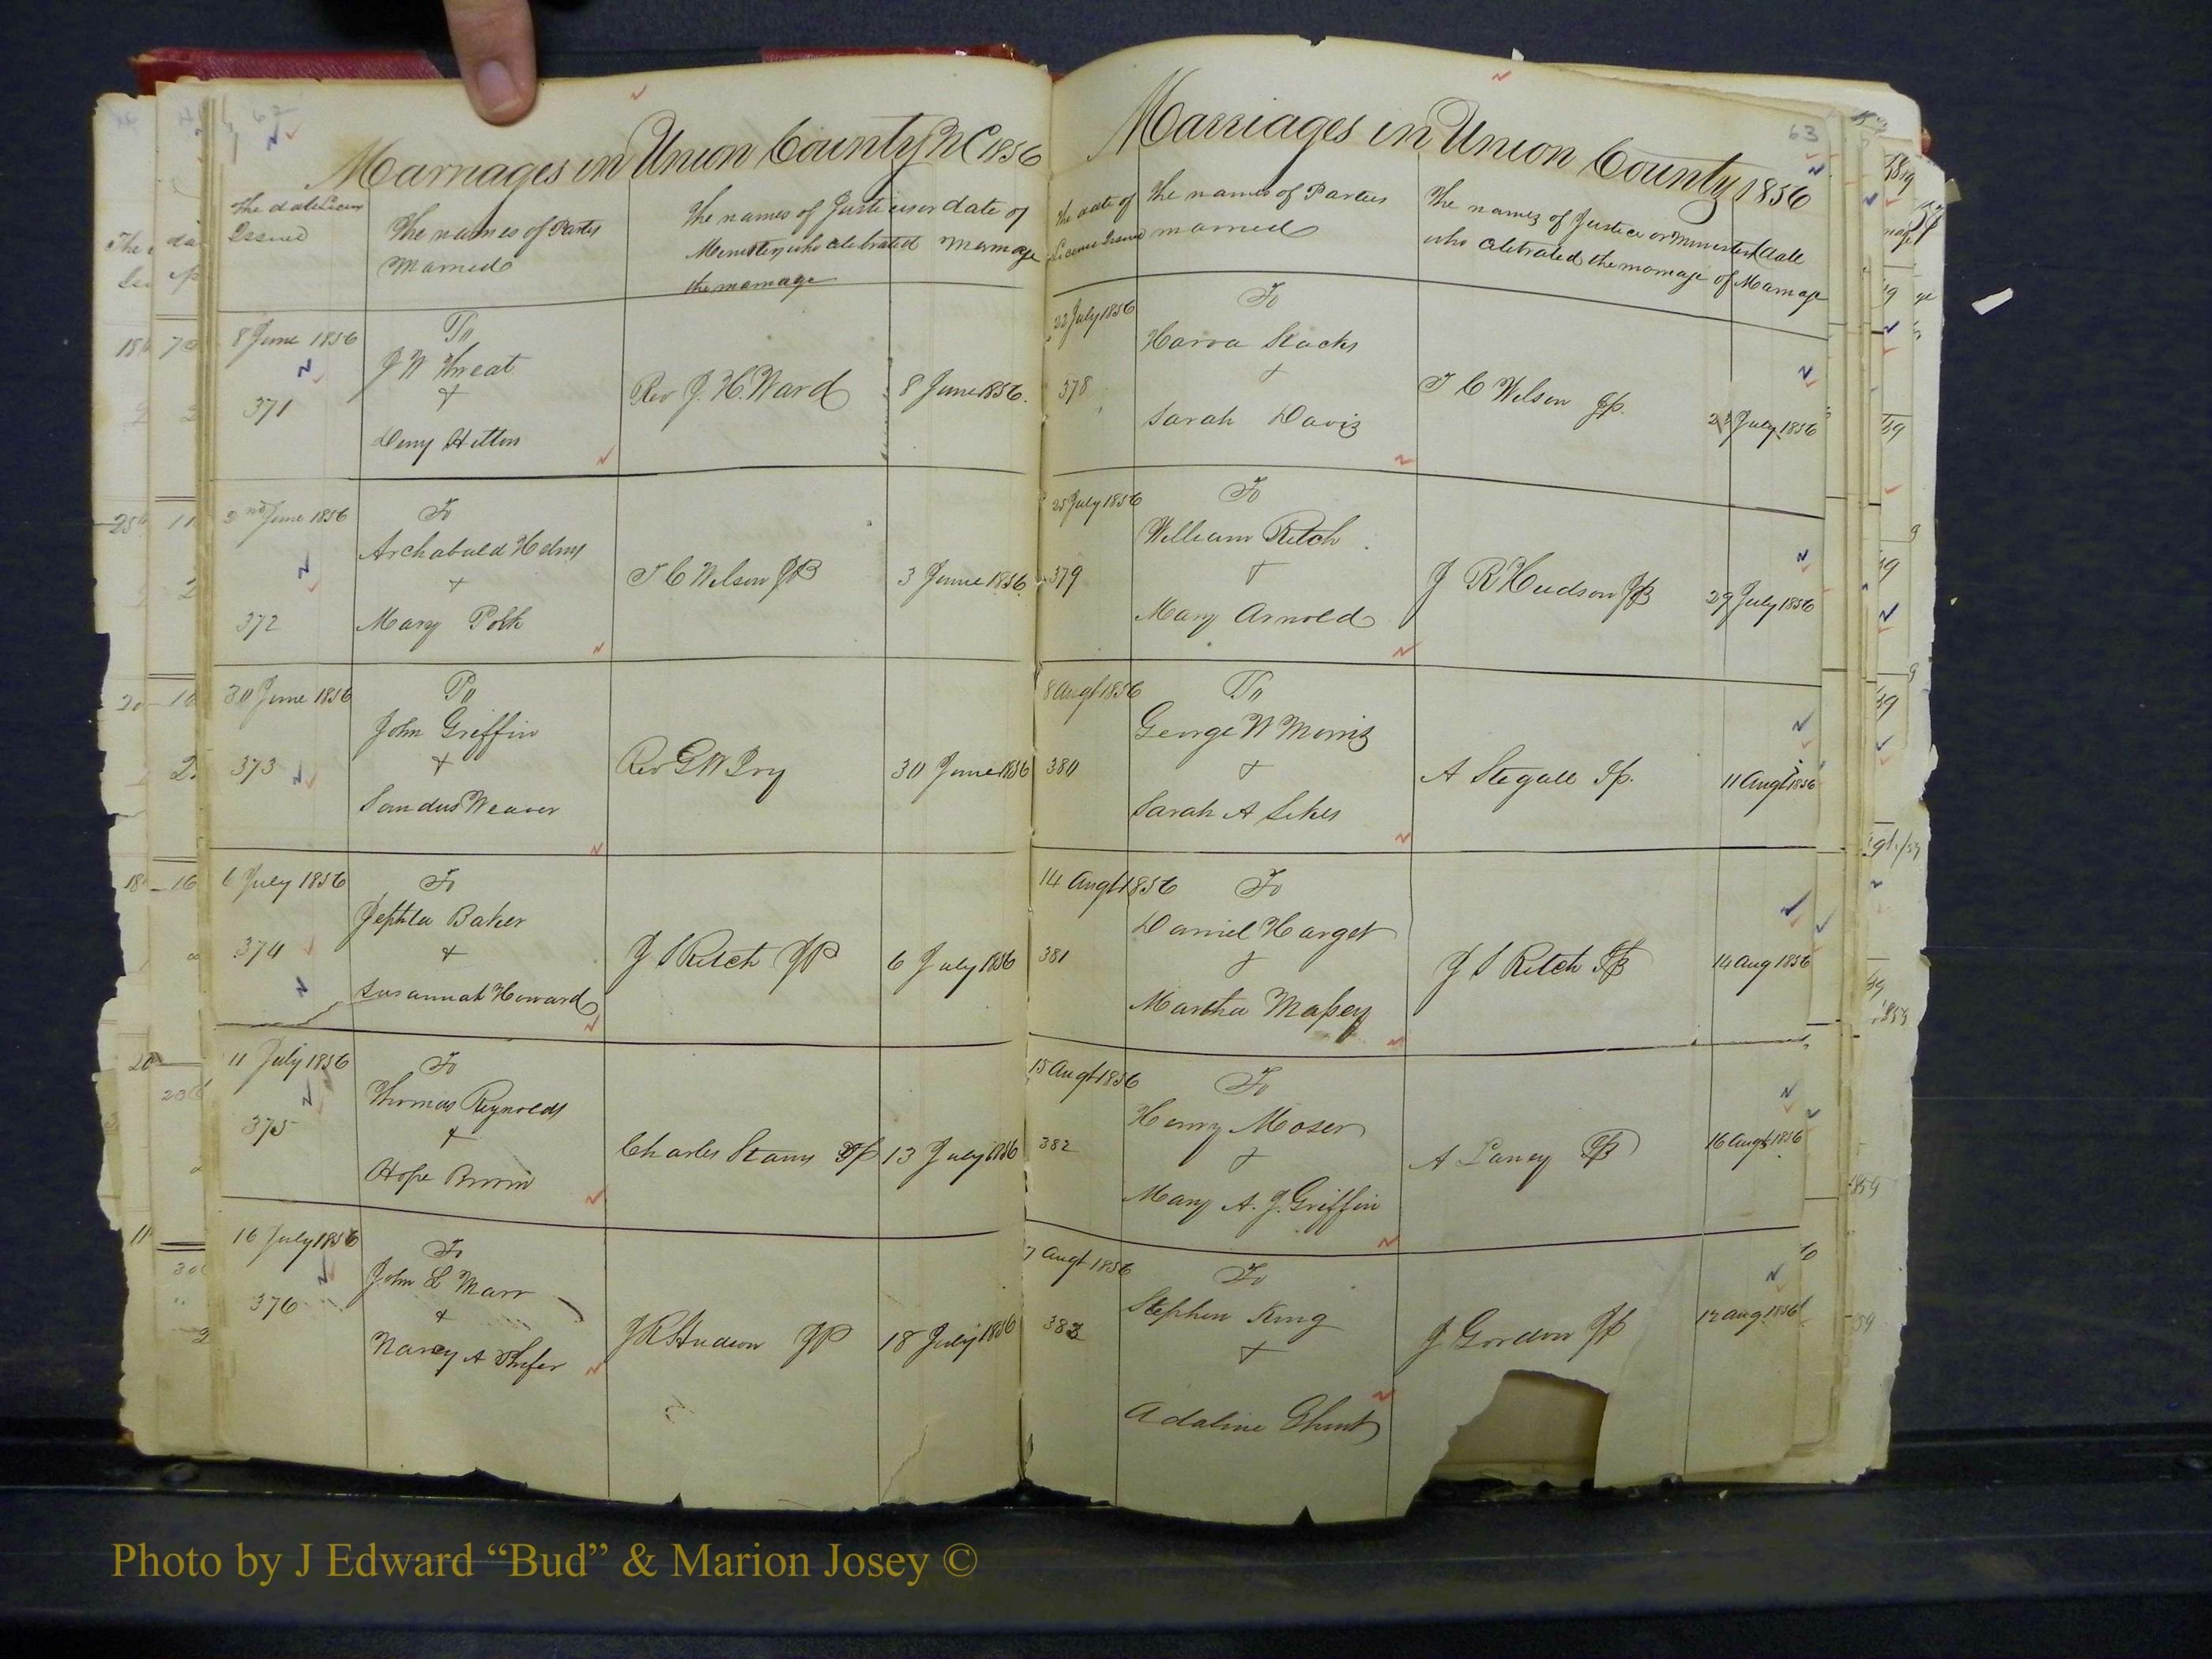 Marriages in Union County N C 1856
The date Licens
Issued
The names of Parties
Married
The names of Justices or date of
Minister who celebrated Marriage
the marriage
8 June 1856
To
J W Threat
+
371
Rev J. H. Ward
8 June 1856.
2nd June 1856
To
Archabald Helms
+
372
Mary Polk
T C Wilson JP
3 June 1856
30 June 1856
To
John Griffin
373
+
Weaver
Rev G W Ivy
30 June 1856
6 July 1856
To
Jephtha Baker
374
+
Susannah Howard
J S Ritch JP
6 July 1856
11 July 1856
To
Thomas Reynolds
375
+
Hope
Charles Stams JP
13 July 1856
16 July 1856
To
John L Marr
376
+
Nancy A
J R Hudson JP
18 July 1856
Marriages in Union County 1856
63
The date of
License Issued
The names of Parties
married
The names of Justice or Minister date
who celebrated the marriage of Marriage
22 July 1856
To
Harva Stacks
378
+
Sarah Davis
T C Wilson Jp.
23 July 1856
25 July 1856
To
William Ritch
379
+
Mary Arnold
J R Hudson JP
29 July 1856
8 Augt 1856
To
George W Morris
380
+
Sarah A Sikes
A Stegall Jp.
11 Augt 1856
14 Augt 1856
To
Daniel Harget
381
+
Martha Massey
J S Ritch JP
14 Aug 1856
15 Augt 1856
To
Henry Moser
382
+
Mary A. J. Griffin
A Laney JP
16 Augt 1856
7 Augt 1856
To
Stephen King
383
+
Adaline
J Gordon JP
12 Aug 1856
Photo by J Edward “Bud” & Marion Josey ©